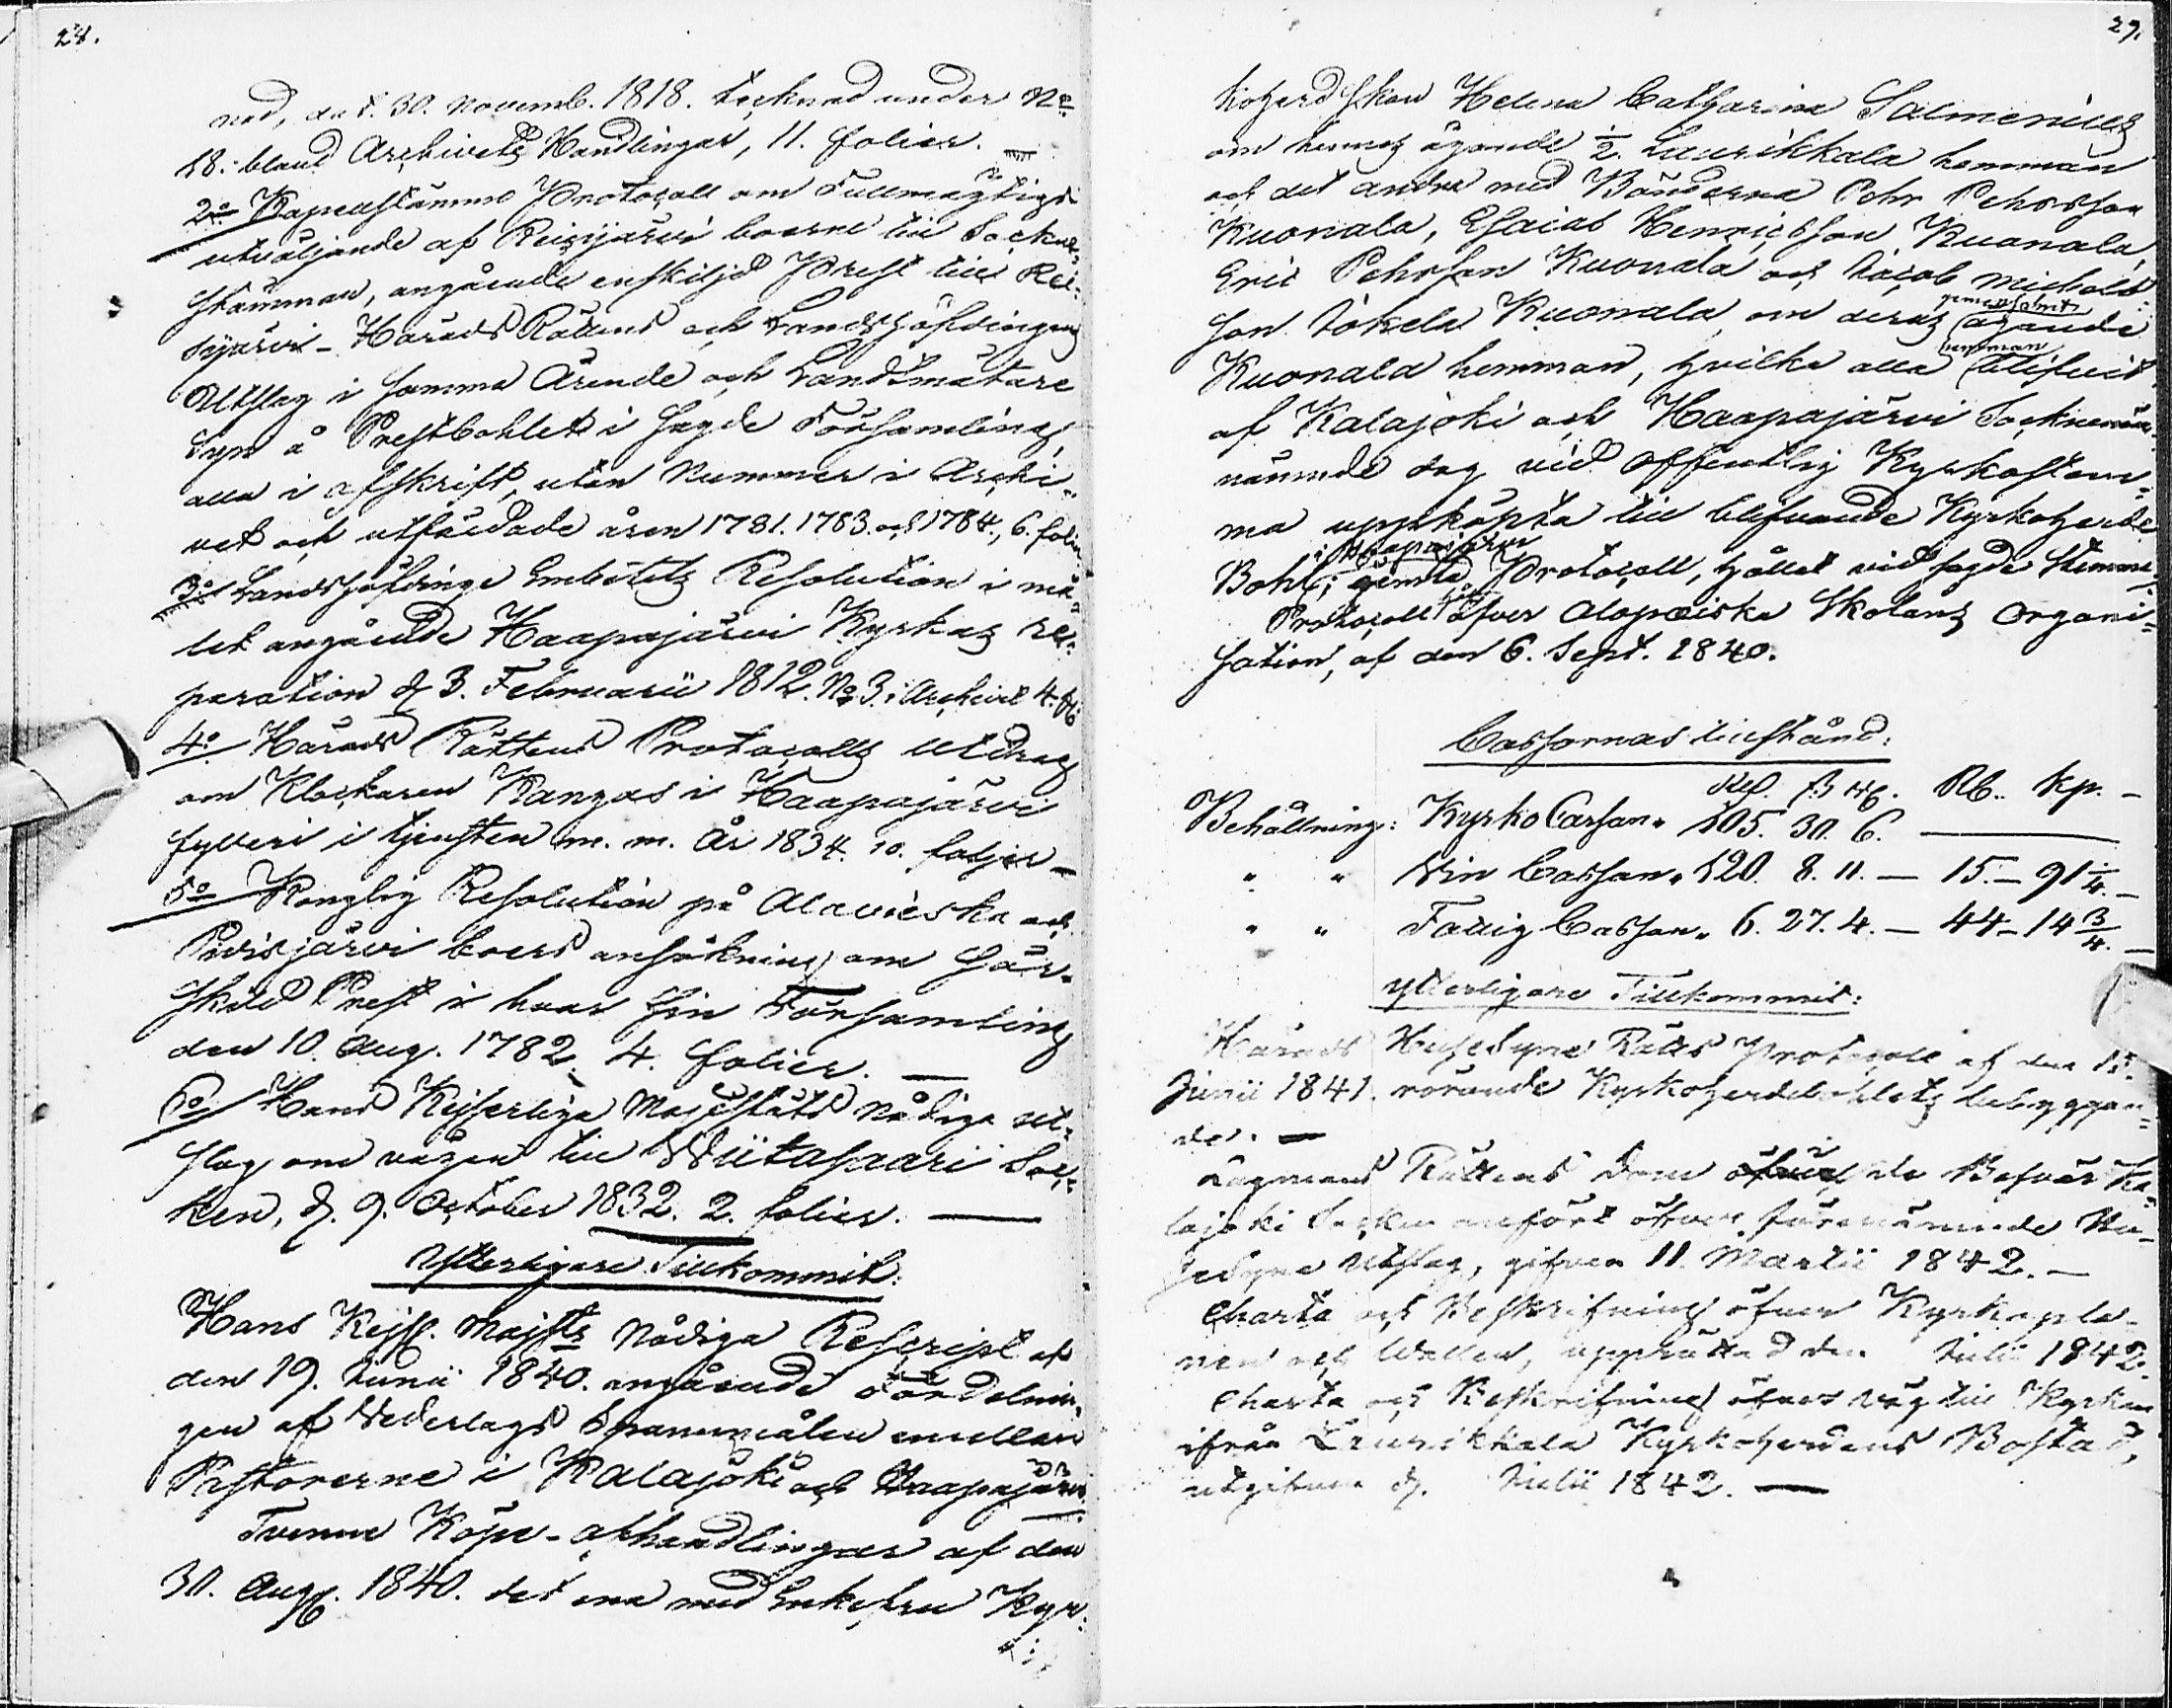 28.
ned, dat. 30. Novemb. 1818. tecknad under No
18. bland Archivets Handlingar, 11. folier. —
2o Kapellstämmo Protocoll om Fullmägtigs
utväljande af Reisjärvi boerne till Sockne
stämman, angående enskiljd Prest till Rei-
sjärvi - Härads Rättens och Landshöfdingens
Utslag i samma Ärende och Landtmätare
Syn å Prestbohlet i sagde Församling,
alla i afskrift, utan Nummer i Archi-
vet och utfärdade åren 1781. 1783. och 1784., 6. folier
3o Landshöfdinge Embetets Resolution i må-
let angående Haapajärvi Kyrkas re-
paration d. 3. Februarii 1812. No 3. i Archivet 4. f.
4o Härads Rättens Protocolls Utdrag
om Klockaren Kangas i Haapajärvi
fylleri i tjensten m. m. År 1834. 10. folier —
5o Konglig Resolution på Alavieska och
Pidisjärvi boers ansökning om sär-
skild Prest i hvar sin Församling
den 10. Aug. 1782. 4. folier. —
6o Hans Kejserliga Majestäts Nådiga Ut-
slag om vägen till Wiitasaari Soc-
ken, d. 9. October 1832. 2. folier. —
Ytterligare Tillkommit:
Hans Kejss. Majsts Nådiga Rescript af
den 19. Junii 1840. angående Fördelnin-
gen af Vederlags Spannmålen emellan
Pastorerne i Kalajoki och Haapajärvi.
Tvenne Köpe-afhandlingar af den
30. Aug. 1840. det ena med Enkefru Kyr-
29.
koherdskan Helena Catharina Salmenius
om hennes ägande 1/2. Laurikkala hemman
och det andra med Bönderna Pehr Pehrsson
Kuonala, Esaias Henricsson Kuonala,
Eric Pehrsson Kuonala och Jacob Michels-
son Jokela Kuonala, om deras gemensamt ägande
Kuonala hemman, hvilka alla hemman blifvit
af Kalajoki och Haapajärvi Socknemän
nämnde dag vid offentlig Kyrkostem-
ma uppköpta till blifvande Kyrkoherde
Bohl i Haapajärvi; jemte Protocoll, hållet vid sagde Stämma
Protocoll öfver Alopæiska Skolans Organi-
sation, af den 6. Sept. 1840.
Cassornas tillstånd:
Rd. ß rg. Rb. Kp. —
Behållning: Kyrko Cassan. 105. 30. 6. —
" " Vin Cassan. 120. 8. 11. — 15. — 91 1/4. —
" " Fattig Cassan. 6. 27. 4. — 44 — 14 3/4. —
Ytterligare Tillkommit:
Härads Husesyns Rätts Protocoll af den 15.
Junii 1841. rörande Kyrkoherdebohlets bebyggan-
de. —
Lagmans Rättens Dom öfver i de Besvär Ka-
lajoki Socken anfört öfver förenämnde Hu-
sesyns Utslag, gifven 11 Martii 1842. —
Charta och Beskrifning öfver Kyrkopla-
nen och Wallen, upprättad den Julii 1842.
Charta och Beskrifning öfver väg till Kyrkan
ifrån Laurikkala Kyrkoherdens Bostad,
utgifven d. Julii 1842. —